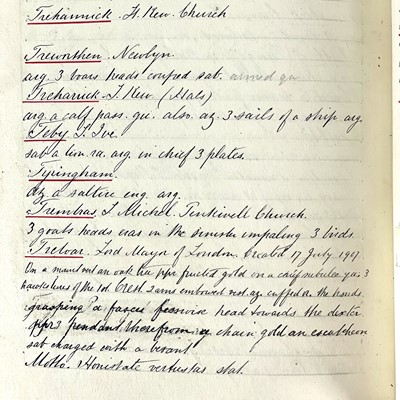 Trehannick. St. Kew. Church
Treworthen. Newlyn.
arg. 3 boars heads couped sat. armed gu
Treharick. St Kew. (Hals)
arg. a calf pass. gu. also. az. 3 sails of a ship arg.
Teby St. Ive.
sab a lion ra. arg. in chief 3 plates.
Typingham.
az a saltire eng. arg.
Trembras, St Michel. Penkivell Church.
3 goats heads eras in the sinister impaling 3 birds.
Treloar. Lord Mayor of London. Created 17 July 1907
On a mount vert an oak tree ppr fructed gold on a chief nebulee gu 3
hawks lures of the 1st. Crest. 2 arms embowed vest. az cuffed or the hands
grasping a fasces fesswise head towards the dexter
ppr pendant therefrom by chain gold an escutcheon
sab charged with a bezant
Motto. Honestate vetustas stat.